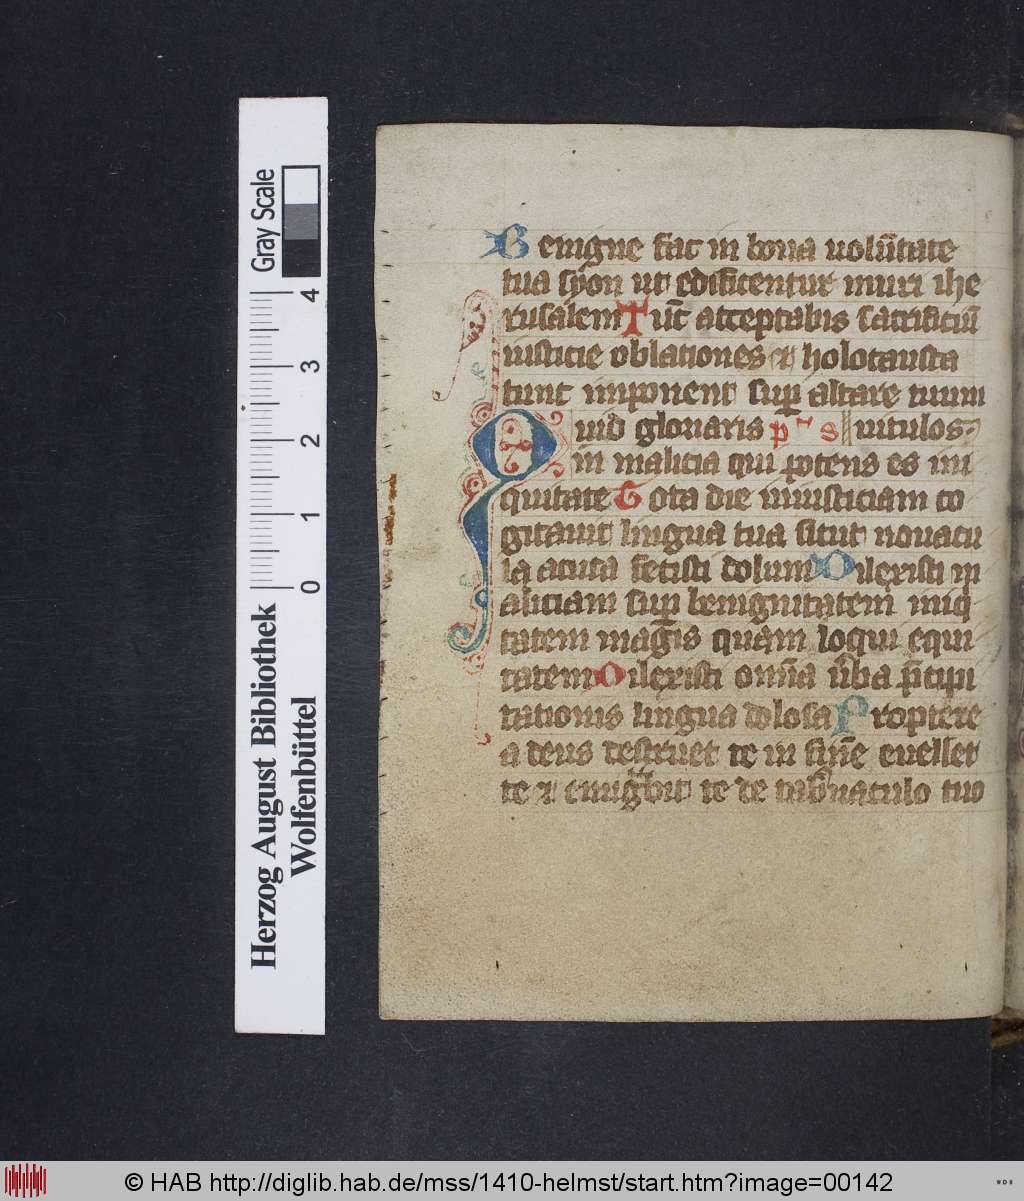 Benigne fac in bona uolūtate
tua syon ut edificentur muri ihe
rusalem Tūc acceptabis sacrificiū
iusticie oblationes ⁊ holocausta
tunc imponent sup altare tuum
Quid gloriaris ps vitulos
in malicia qui potens es ini
quitate Tota die iniusticiam co
gitauit lingua tua sicut nouacu
la acuta fecisti dolum Dilexisti m
aliciam sup benignitatem iniq
tatem magis quam loqui equi
tatem Dilexisti omīa ūba p̄cipi
tationis lingua dolosa Proptere
a deus destruet te in finē euellet
te ⁊ emigbit te de tabnaculo tuo
Gray Scale
0 1 2 3 4
Herzog August Bibliothek
Wolfenbüttel
© HAB http://diglib.hab.de/mss/1410-helmst/start.htm?image=00142